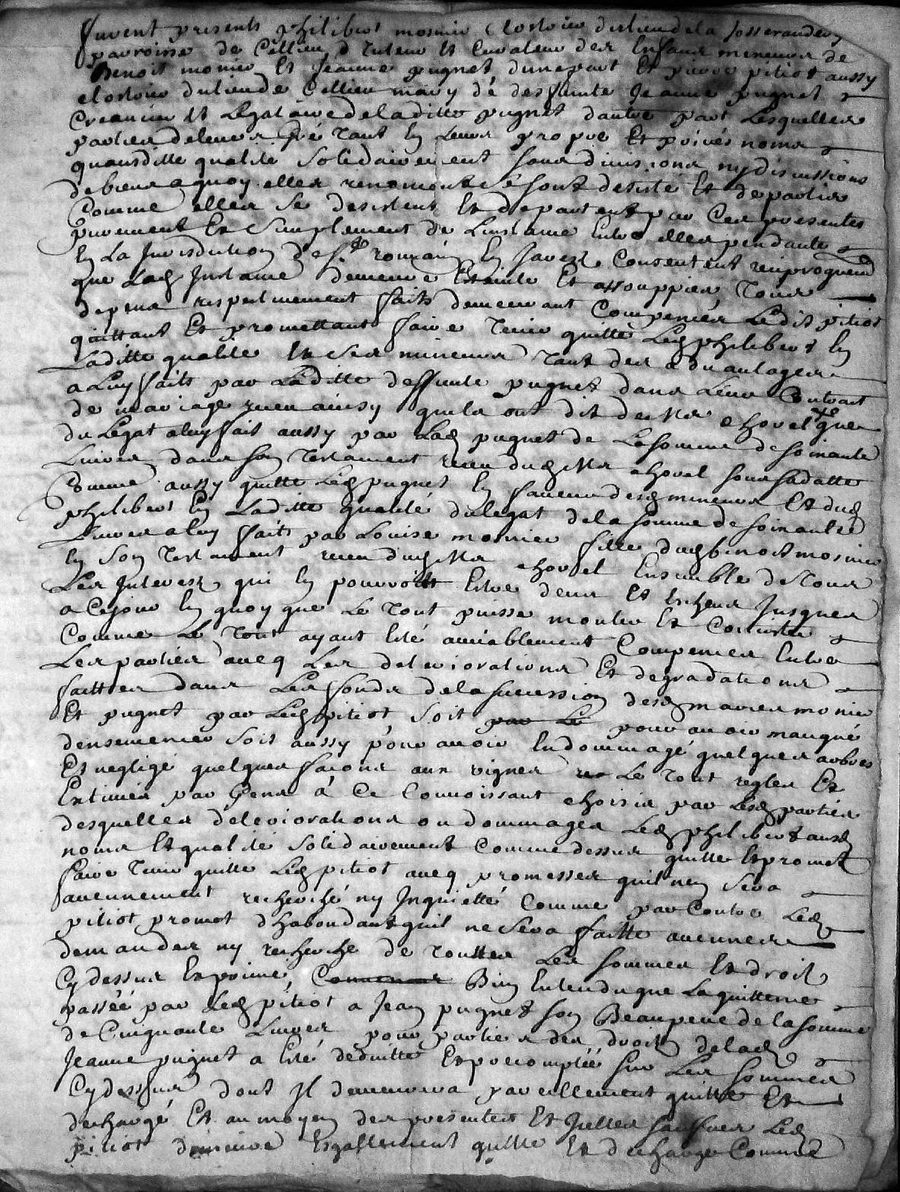 furent presents philibert mosnier Clostrier du lieu de la Josserandery
parroisse de Cellieu d Tuteur et Curateur des Enfans mineurs de
Benoit monier Et Jeanne pugnet d'une part Et pierre pitiot aussy
du lieu de Cellieu mary de deffunte Jeanne pugnet
Creancier Et Legataire de laditte pugnet dautre part Lesquelles
parties de leurs gré Tant En leurs propre Et privés noms
quausditte qualité Solidairement sans divisions ny discutions
de biens a quoy elles renoncent Se sont desisté Et departie
Comme elles Se desistent Et departent par Ces presentes
purement Et Simplement de Linstance Entre elles pendante
En La Jurisdiction de St romain En Jarest Consentent reciproquem
que Lad Instance demeure Eteinte Et assouppie Tous
depens respectivement faits demeurant Compensés Ledit pitiot
quittant Et promettant faire Tenir quitte Led philibert En
Laditte qualité Et Ses mineurs Tant des advantages
a Luy faits par Laditte deffunte pugnet dans Leur Contrat
de mariage receu ainsy quils ont dit de Me Chovel que
du Legat a luy fait aussy par Lad pugnet de La somme de soixante
Livres dans Son Testament receu dud Me Chovel sous sa datte
Comme aussy quitte Led pugnet En faveur desd mineurs Et dud
philibert En Laditte qualité du legat de la somme de soixante
Livres a luy fait par Louise monier fille dud benoit mosnier
En Son Testament receu dud Me Chovel Ensemble de Tous
Les Interest qui En pourroit Estre deus Et Escheus Jusques
a Ce jour En quoy que Le Tout puisse monter Et Consister
Comme Le Tout ayant Eté amiablement Compensés Entre
Les parties avec Les deteriorations Et degradations
faittes dans Les fonds de la succession desd maries monier
Et pugnet par Led pitiot Soit par Le pour avoir manqué
densemencer Soit aussy pour avoir Endommagé quelques arbres
Et negligé quelques façons aux vignes Le Tout reglés Et
Estimés par Gens a Ce Connoissant Choisis par Lesd parties
desquelles deteriorations ou dommages Led philibert ausd
noms Et qualité Solidairement Comme dessus quitte Et promet
faire Tenir quitte Led pitiot avec promesses quil nen Sera
aucunement recherché ny Inquietté Comme par Contre Led
pitiot promet d'habondant quil ne Sera faitte aucunes
demandes ny recherche de Touttes Les sommes Et droit
Cy dessus Exprimé Comme Bien Entendu que La quittence
passée par Led pitiot a Jean pugnet Son Beaupere de la somme
de Cinquante Livres pour partie des droits de lad
Jeanne pugnet a Eté deduitte Et precomptée Sur Les sommes
Cy dessus dont Il demeurera pareillement quitte Et
dechargé Et au moyen des presentes Et Led
pitiot demeure Esgallement quitte Et dechargé Comme